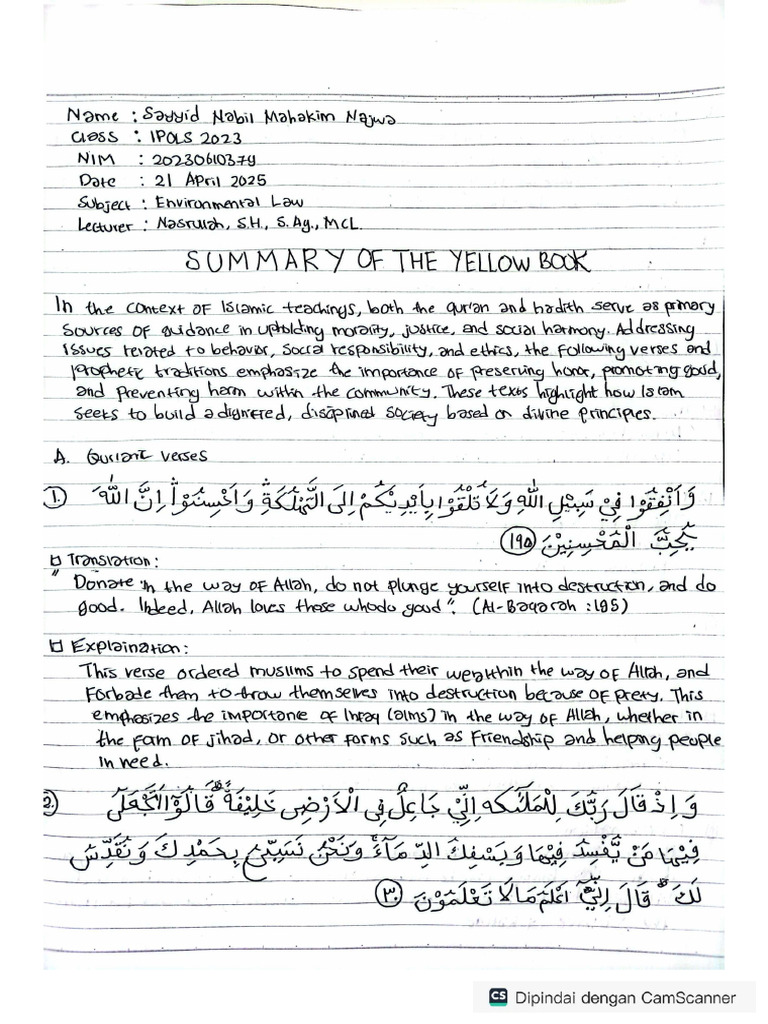 Name : Sayyid Nabil Mahakim Najwa
Class : IPOLS 2023
NIM : 20230610379
Date : 21 April 2025
Subject : Environmental Law
Lecturer : Nasrullah, S.H., S.Ag., MCL.
SUMMARY OF THE YELLOW BOOK
In the context of Islamic teachings, both the qur'an and hadith serve as primary
sources of guidance in upholding morality, justice, and social harmony. Addressing
issues related to behavior, social responsibility, and ethics, the following verses and
prophetic traditions emphasize the importance of preserving honor, promoting good,
and preventing harm within the community. These texts highlight how Islam
seeks to build a dignified, disciplined society based on divine principles.
A. Qur'anic verses
1. وَأَنْفِقُوْا فِيْ سَبِيْلِ اللّٰهِ وَلَا تُلْقُوْا بِأَيْدِيْكُمْ اِلَى التَّهْلُكَةِ ۛ وَاَحْسِنُوْا ۛ اِنَّ اللّٰهَ
يُحِبُّ الْمُحْسِنِيْنَ ١٩٥
Translation :
"Donate in the way of Allah, do not plunge yourself into destruction, and do
good. Indeed, Allah loves those who do good". (Al-Baqarah : 195)
Explaination :
This verse ordered muslims to spend their wealth in the way of Allah, and
forbade them to throw themselves into destruction because of . This
emphasizes the importance of Infaq (alms) in the way of Allah, whether in
the form of jihad, or other forms such as Friendship and helping people
in need.
2. وَاِذْ قَالَ رَبُّكَ لِلْمَلٰٓئِكَه اِنِّيْ جَاعِلٌ فِى الْاَرْضِ خَلِيْفَةً ۗ قَالُوْٓا اَتَجْعَلُ
فِيْهَا مَنْ يُّفْسِدُ فِيْهَا وَيَسْفِكُ الدِّمَآءَ ۚ وَنَحْنُ نُسَبِّحُ بِحَمْدِكَ وَنُقَدِّسُ
لَكَ ۗ قَالَ اِنِّيْٓ اَعْلَمُ مَا لَا تَعْلَمُوْنَ ٣٠
CS Dipindai dengan CamScanner